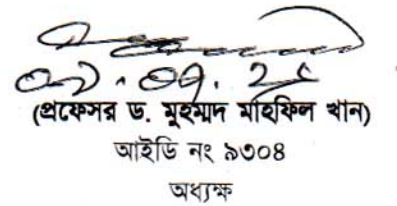 (প্রফেসর ড. মুহম্মদ মহিফিল খান)
আইডি নং ৯৩০৪
অধ্যক্ষ